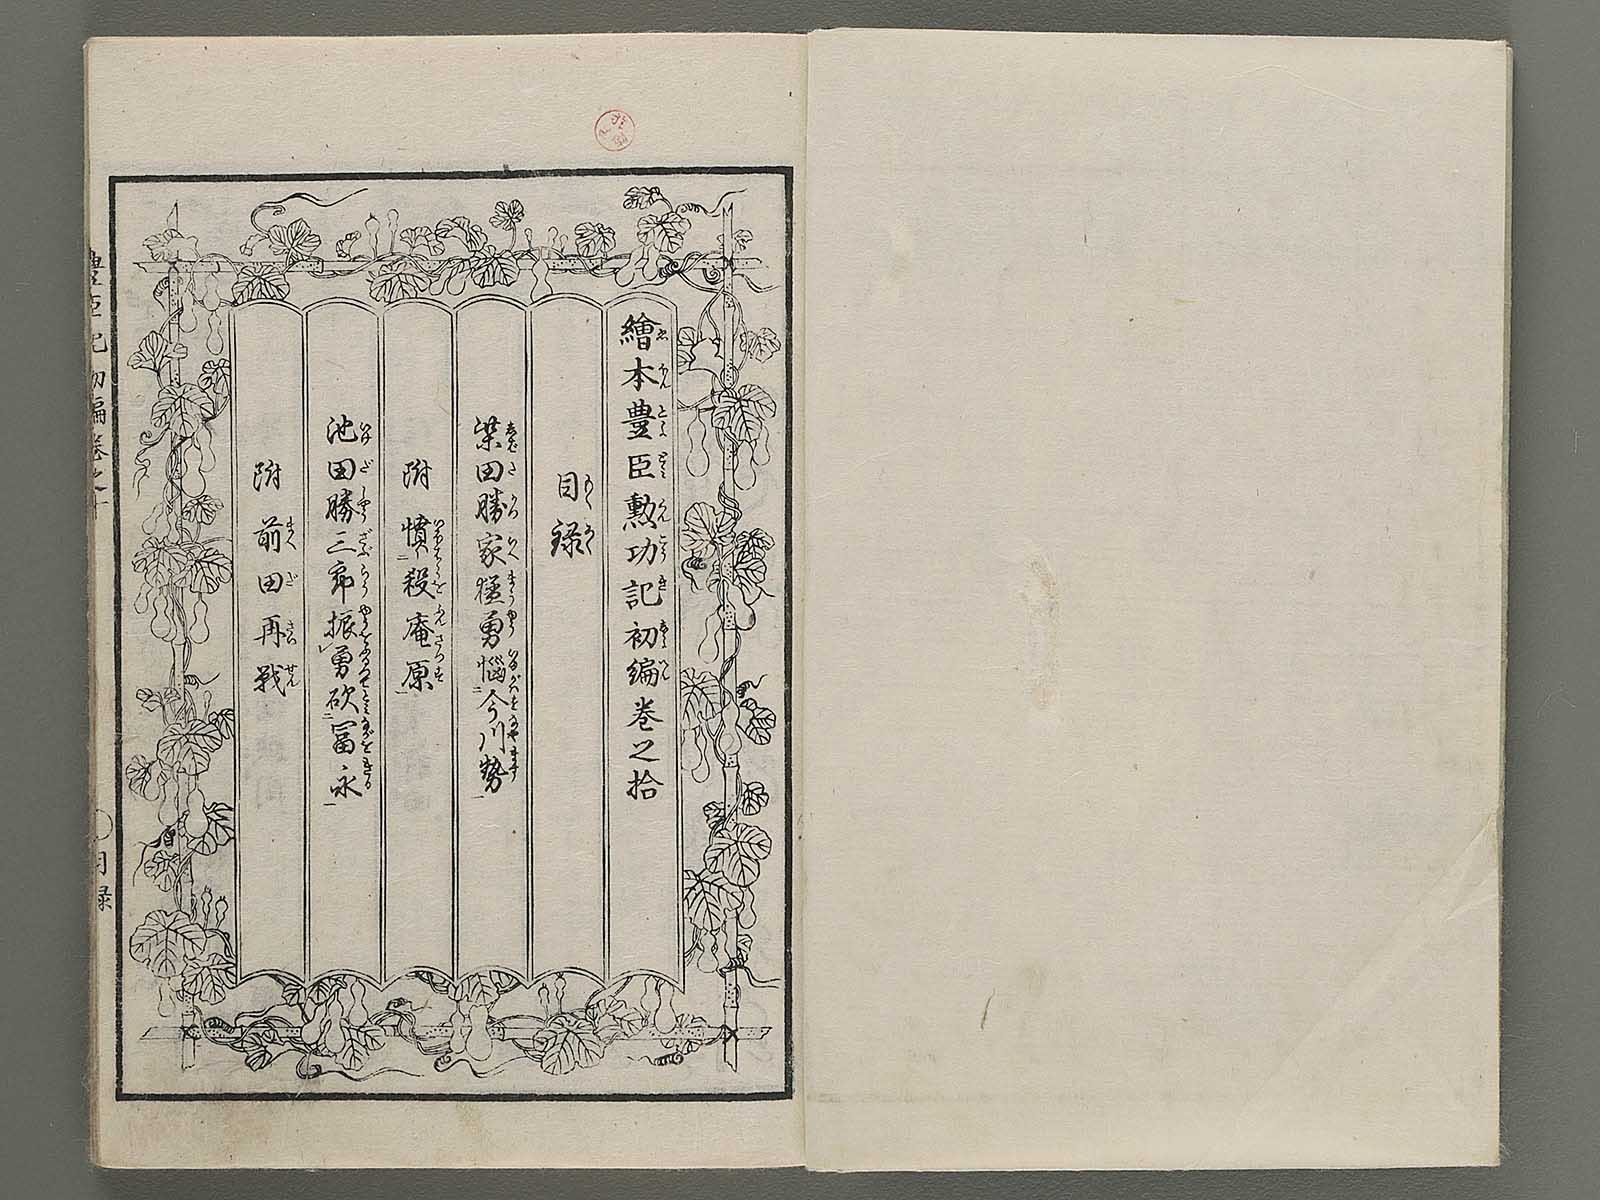 繪本豊臣勲功記初編巻之拾
目録
柴田勝家猛勇悩今川勢
附憤殺庵原
池田勝三郎振勇砍冨永
附前田再戦
豊臣記初編巻之十
目録